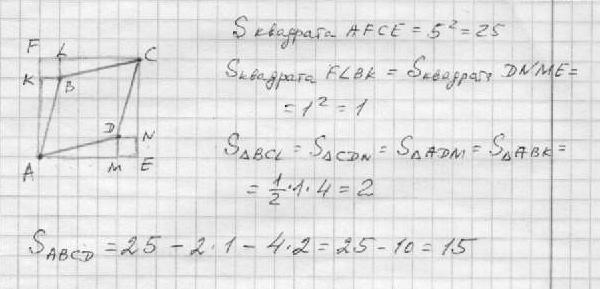 F L C
K B
D N
A M E
S квадрата AFCE = 5² = 25
Sквадрата FLBK = Sквадрата DNME =
= 1² = 1
S△BCL = S△CDN = S△ADM = S△ABK =
= 1/2 · 1 · 4 = 2
SABCD = 25 - 2·1 - 4·2 = 25 - 10 = 15